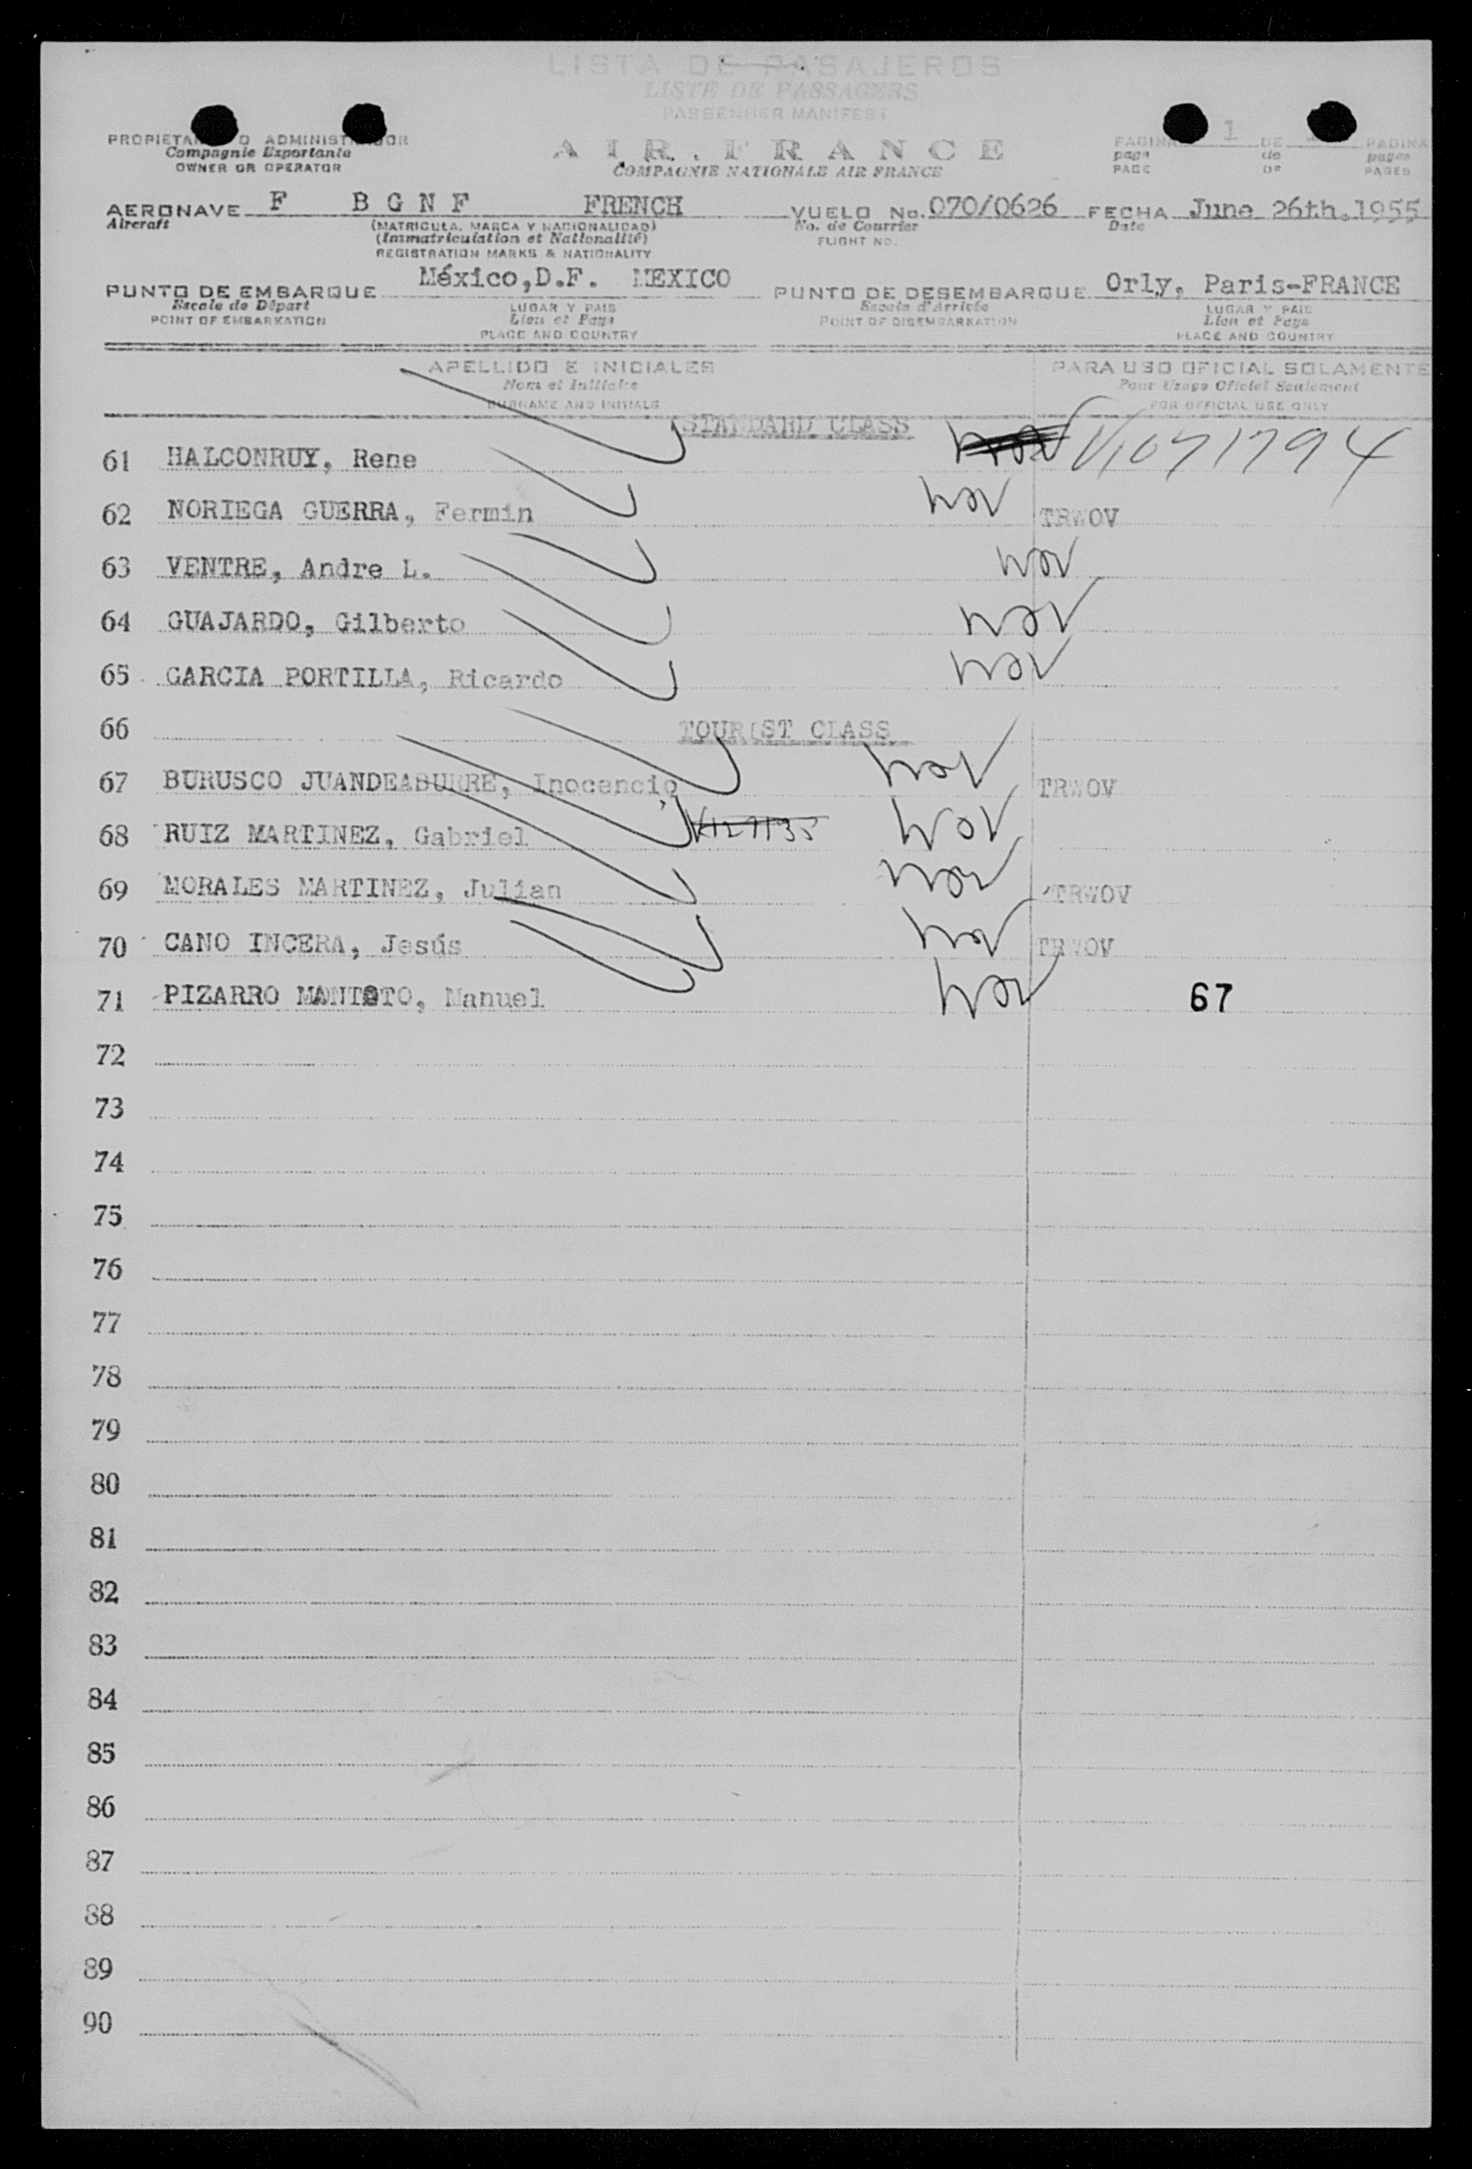 LISTA DE PASAJEROS
LISTE DE PASSAGERS
PASSENGER MANIFEST
AIR FRANCE
COMPAGNIE NATIONALE AIR FRANCE
ADMINISTRADOR
Compagnie Exportante
OWNER OR OPERATOR
PAGINA 1 DE PAGINA
page de pages
PAGE OF PAGES
AERONAVE F B G N F FRENCH VUELO No. 070/0626 FECHA June 26th.1955
Aircraft (MATRICULA, MARCA Y NACIONALIDAD) No. de Courrier Date
(Immatriculation et Nationalité) FLIGHT NO.
REGISTRATION MARKS & NATIONALITY
PUNTO DE EMBARQUE México,D.F. MEXICO PUNTO DE DESEMBARQUE Orly, Paris-FRANCE
Escale de Départ LUGAR Y PAIS Escale d'Arrivée LUGAR Y PAIS
POINT OF EMBARKATION Lieu et Pays POINT OF DISEMBARKATION Lieu et Pays
PLACE AND COUNTRY PLACE AND COUNTRY
APELLIDO E INICIALES PARA USO OFICIAL SOLAMENTE
Nom et Initiales Pour Usage Officiel Seulement
SURNAME AND INITIALS FOR OFFICIAL USE ONLY
STANDARD CLASS
61 HALCONRUY, Rene
62 NORIEGA GUERRA, Fermin wov TRWOV
63 VENTRE, Andre L. wov
64 GUAJARDO, Gilberto wov
65 GARCIA PORTILLA, Ricardo wov
66 TOURIST CLASS
67 BURUSCO JUANDEABURRE, Inocencio wov TRWOV
68 RUIZ MARTINEZ, Gabriel wov
69 MORALES MARTINEZ, Julian wov TRWOV
70 CANO INCERA, Jesús wov TRWOV
71 PIZARRO Manuel wov 67
72
73
74
75
76
77
78
79
80
81
82
83
84
85
86
87
88
89
90